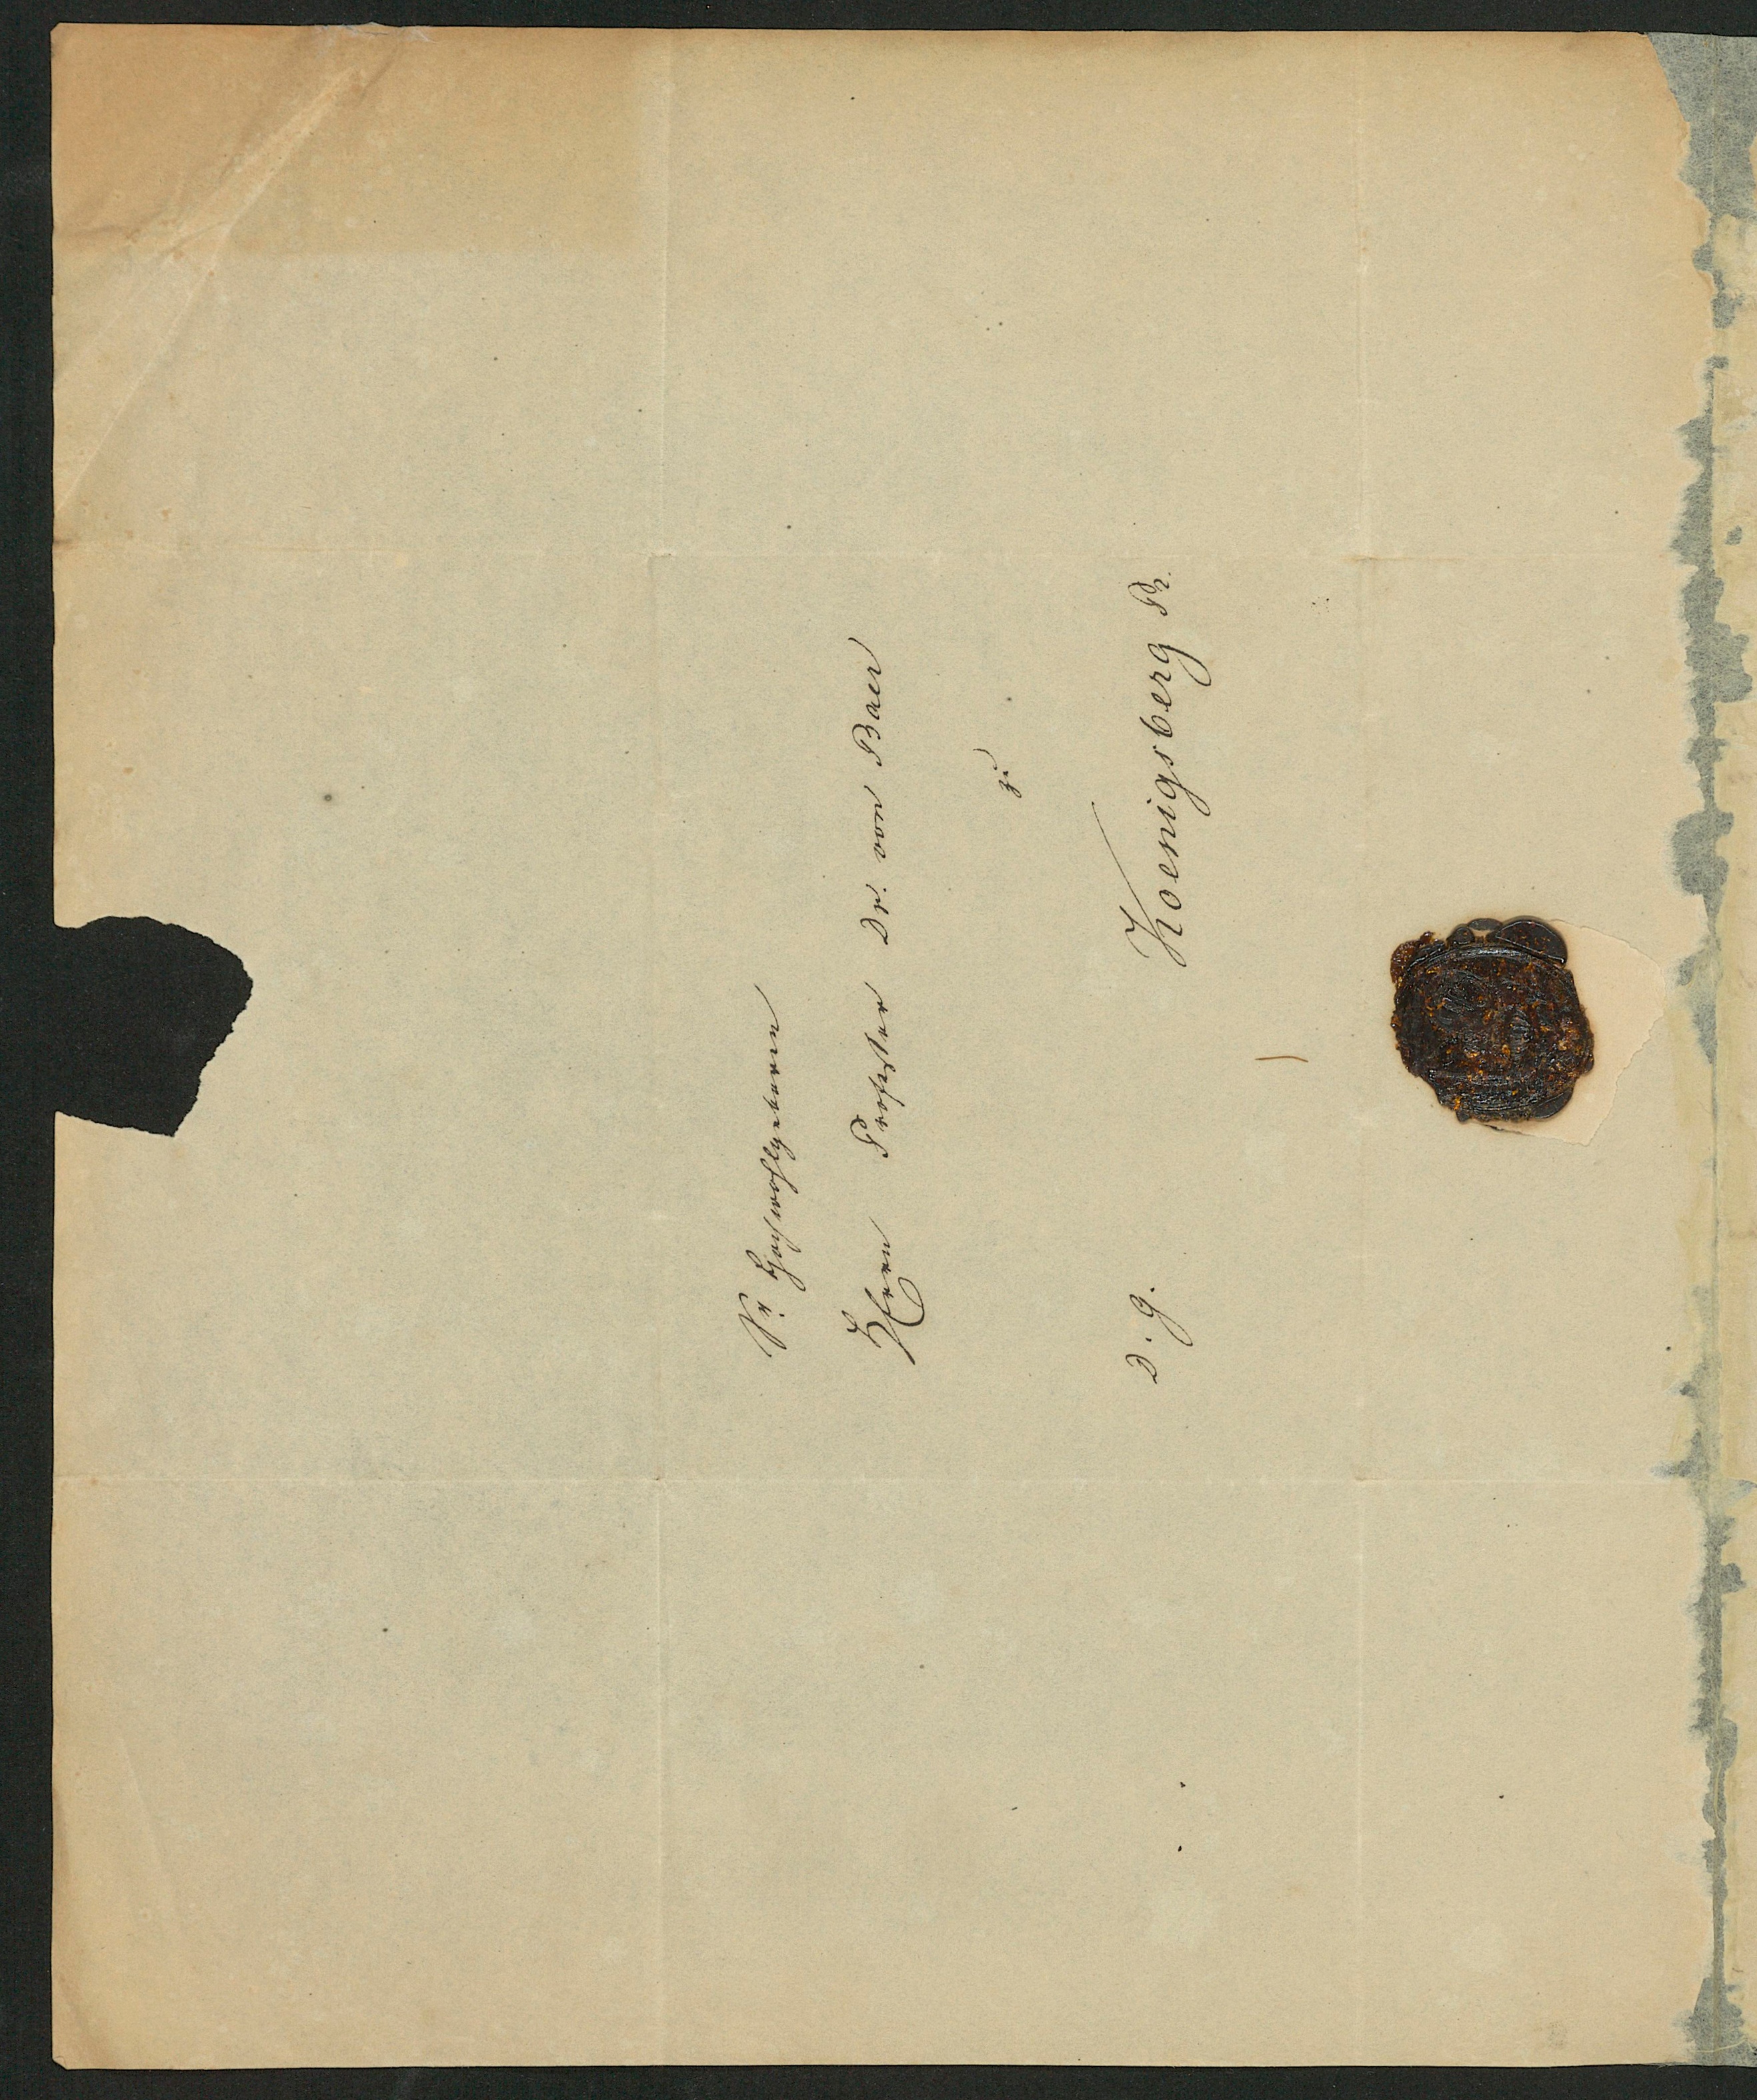 Sr. Hochwohlgeboren
Herrn Professor Dr. von Baer
zu
Koenigsberg Pr.
D. G.